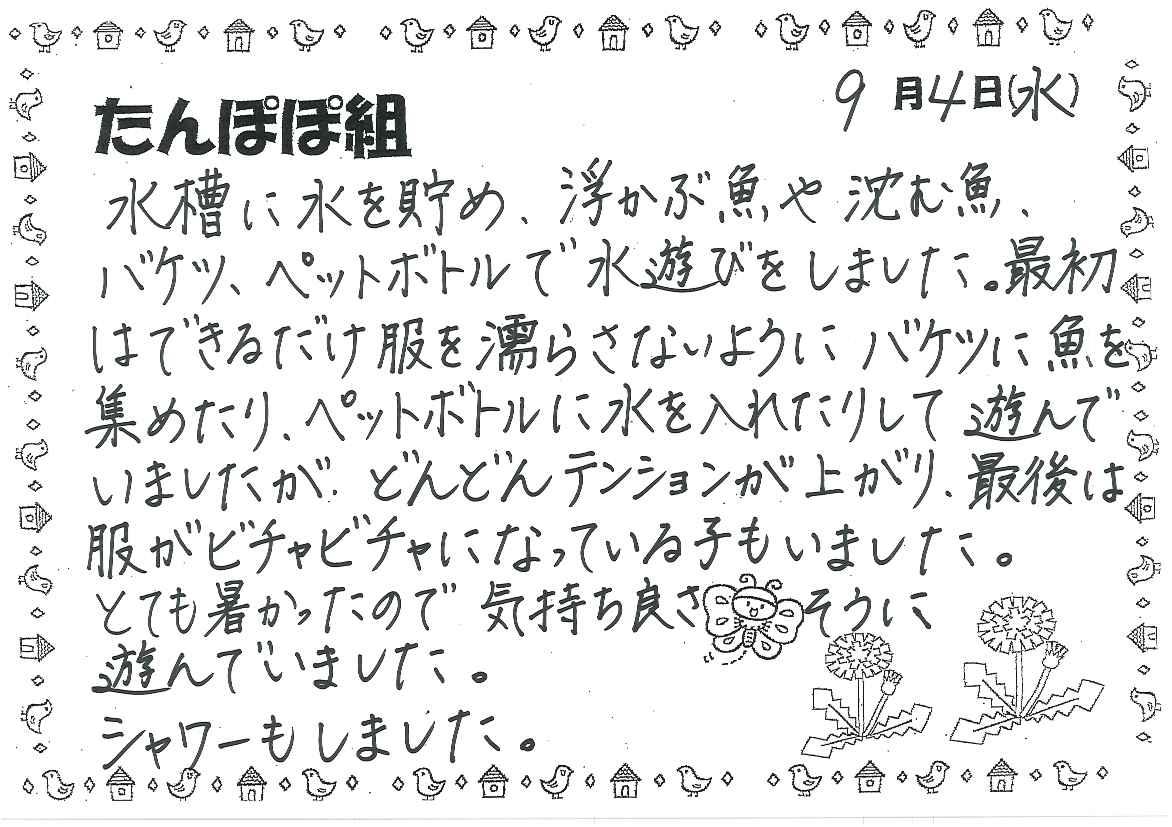 9月4日(水)
たんぽぽ組
水槽に水を貯め、浮かぶ魚や沈む魚、
バケツ、ペットボトルで水遊びをしました。最初
はできるだけ服を濡らさないようにバケツに魚を
集めたり、ペットボトルに水を入れたりして遊んで
いましたが、どんどんテンションが上がり、最後は
服がビチャビチャになっている子もいました。
とても暑かったので気持ち良さそうに
遊んでいました。
シャワーもしました。